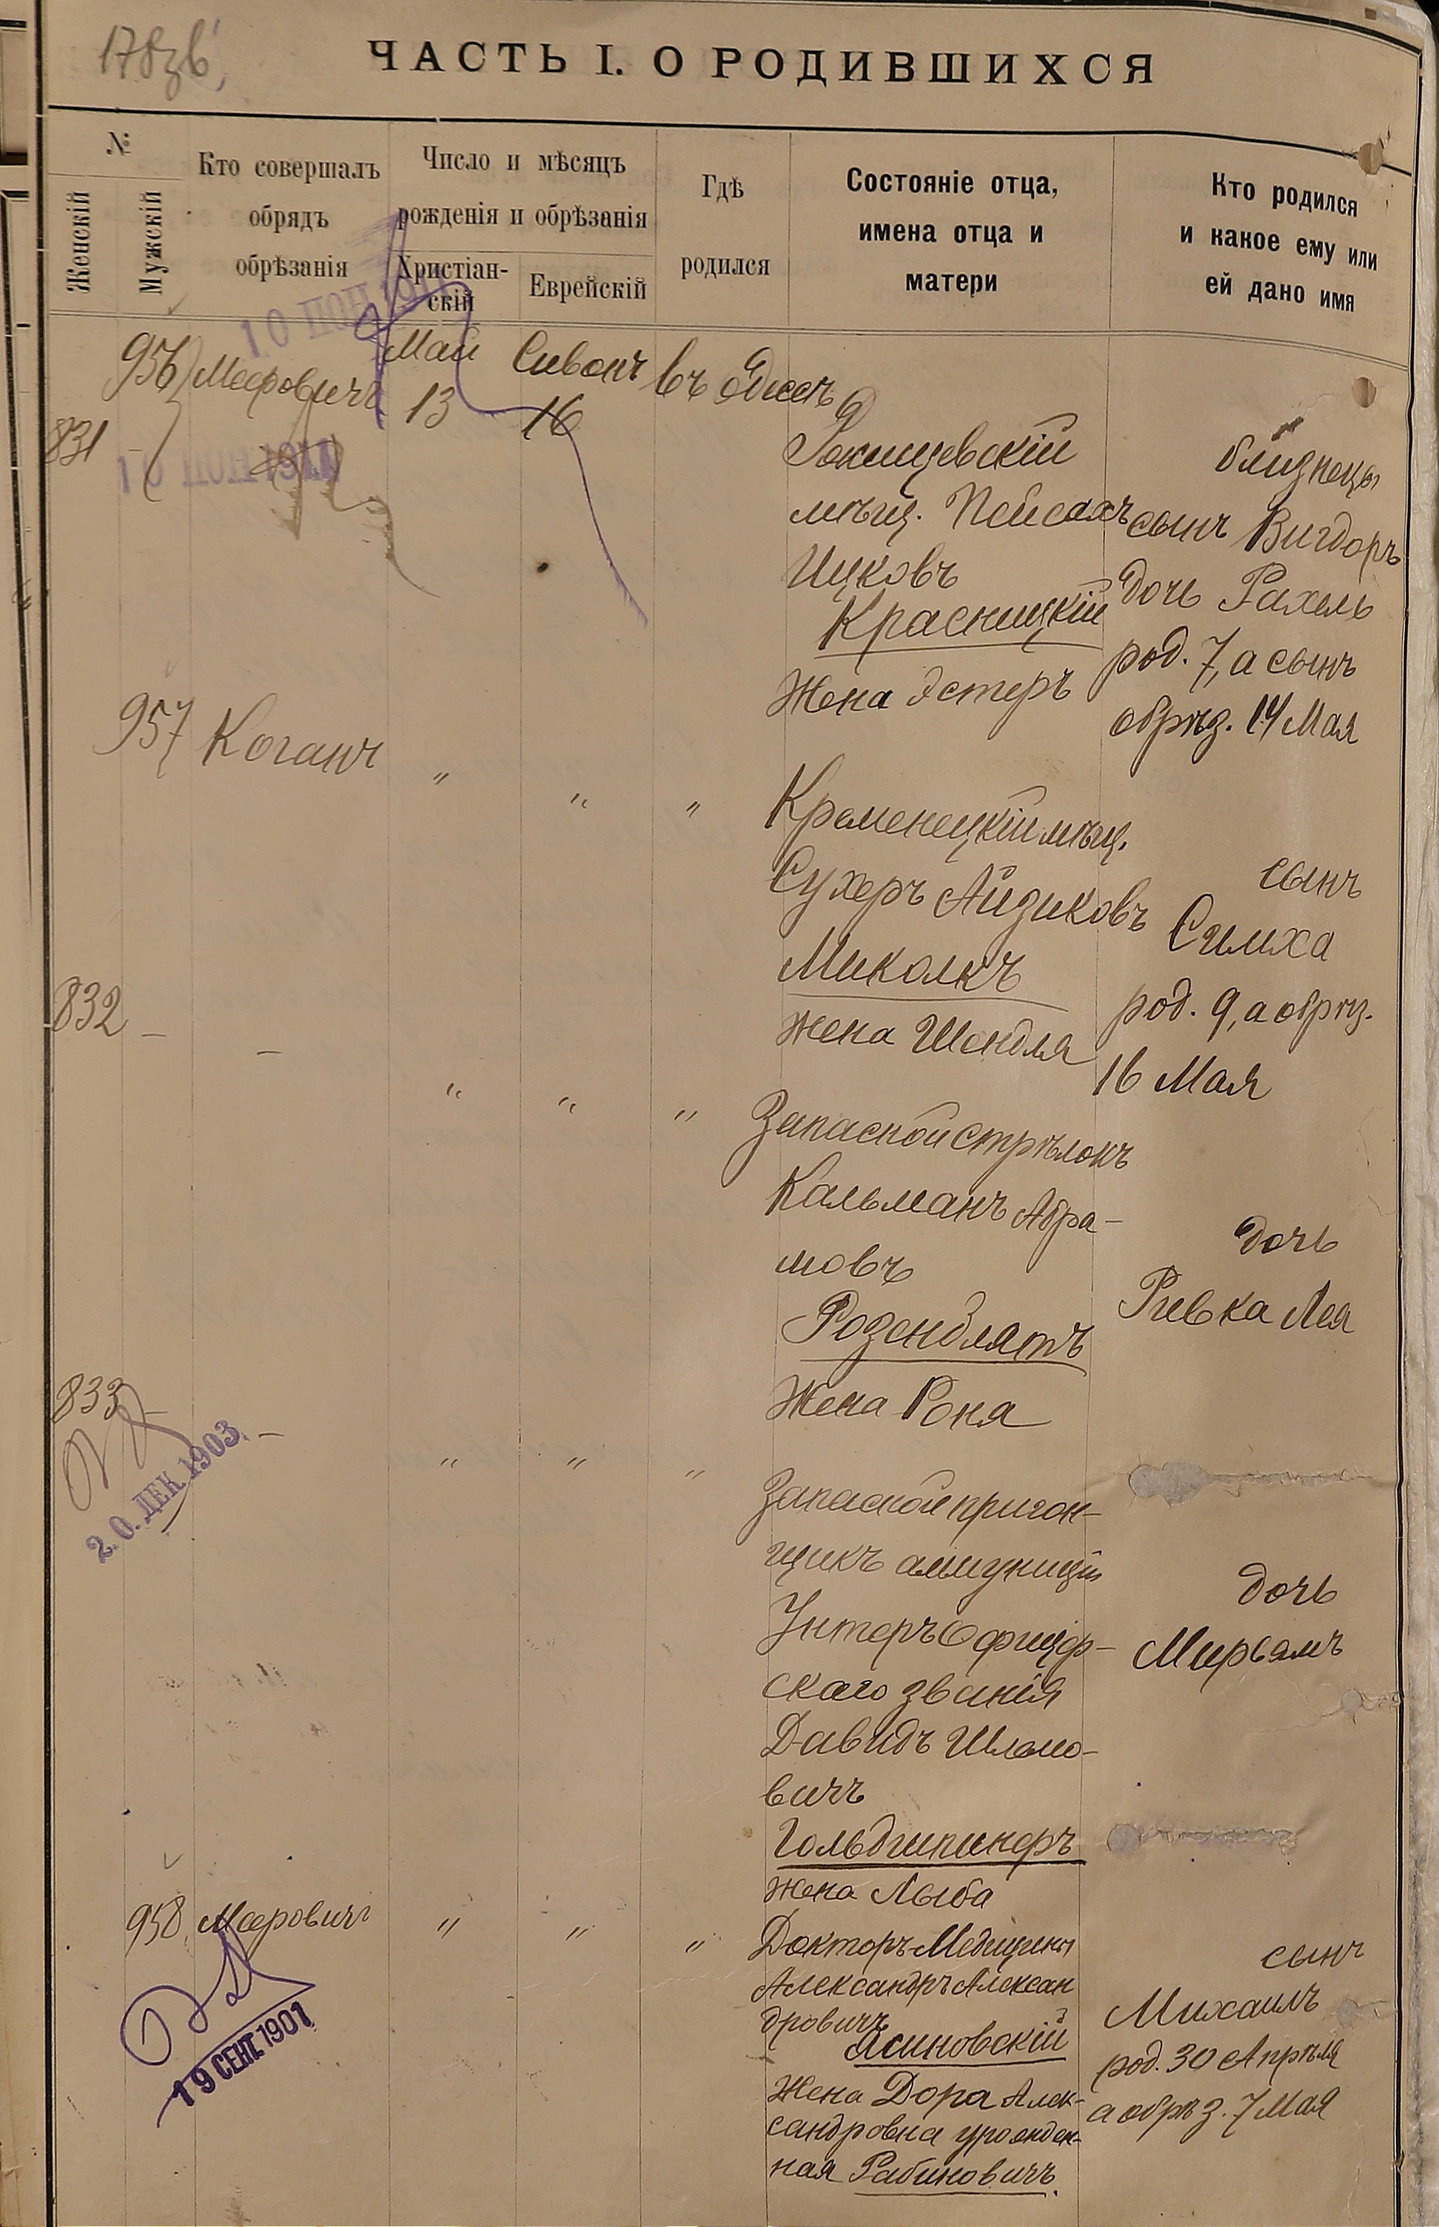 178зв
ЧАСТЬ I. О РОДИВШИХСЯ
№
Женскій
Мужскій
Кто совершалъ
обрядъ
обрѣзанія
Число и мѣсяцъ
рожденія и обрѣзанія
Христіан-
скій
Еврейскій
Гдѣ
родился
Состояніе отца,
имена отца и
матери
Кто родился
и какое ему или
ей дано имя
956 Мееровичъ Май Сивонъ въ Одессѣ
831 13 16
Рокищевскій
мѣщ. Пейсахъ
Ицковъ
Красницкій
Жена Эстеръ
близнецы
сынъ Вигдоръ
дочь Рахель
род. 7, а сынъ
обрѣз. 14 Мая
957 Коганъ " " "
Кременецкій мѣщ.
Сухеръ Айзиковъ
Миколкъ
Жена Шендля
сынъ
Симха
род. 9, а обрѣз.
16 Мая
832 — — " " "
Запасной стрѣлокъ
Кальманъ Абра-
мовъ
Розенблятъ
Жена Роня
дочь
Ривка Лея
833 — — " " "
20. ДЕК. 1903
Запасной пригон-
щикъ аммуниціи
Унтеръ Офицер-
скаго званія
Давидъ Шлемо-
вичъ
Гольдшпинеръ
Жена Лыба
дочь
Мирьямъ
958 Мееровичъ " " "
19 СЕНТ. 1901
Докторъ Медицины
Александръ Алексан
дровичъ
Ясиновскій
Жена Дора Алек-
сандровна урожден-
ная Рабиновичъ.
сынъ
Михаилъ
род. 30 Апрѣля
а обрѣз. 7 Мая